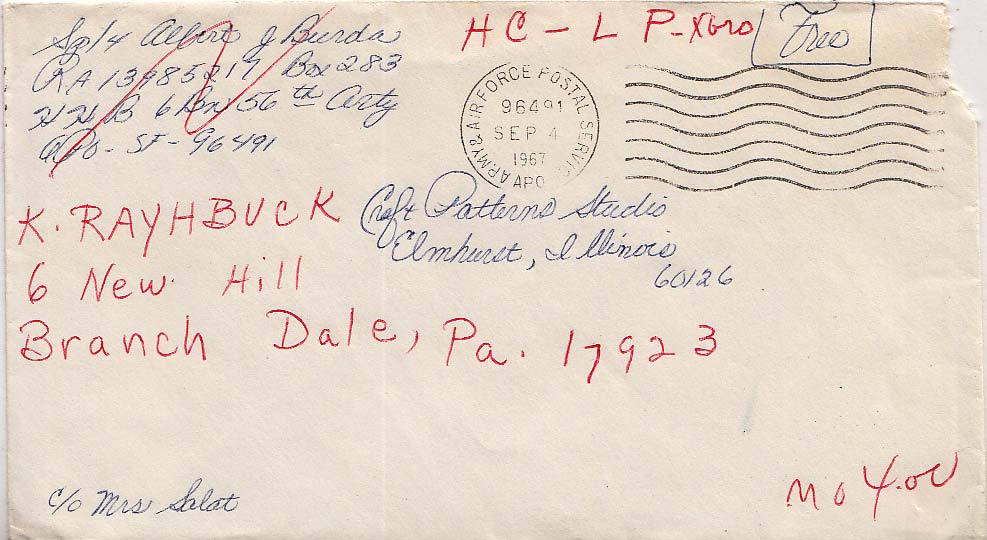 Sp/4 Albert J Burda
RA 13985217 Box 283
HHB 6 Bn 56th Arty
APO - SF - 96491
HC - L P-
Free
ARMY & AIR FORCE POSTAL SERVICE
96491
SEP 4
1967
APO
K. RAYHBUCK
6 New Hill
Branch Dale, Pa. 17923
Craft Patterns Studio
Elmhurst, Illinois
60126
c/o Mrs Salat
MO 4.00